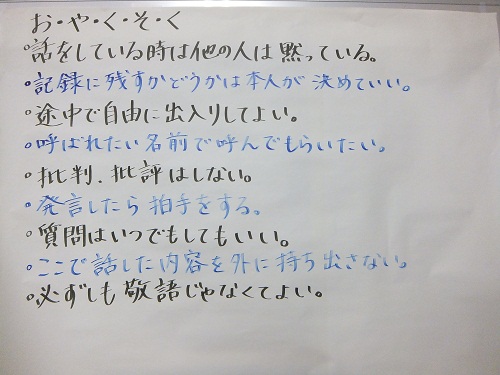 お・や・く・そ・く
・話をしている時は他の人は黙っている。
・記録に残すかどうかは本人が決めていい。
・途中で自由に出入りしてよい。
・呼ばれたい名前で呼んでもらいたい。
・批判、批評はしない。
・発言したら拍手をする。
・質問はいつでもしてもいい。
・ここで話した内容を外に持ち出さない。
・必ずしも敬語じゃなくてよい。